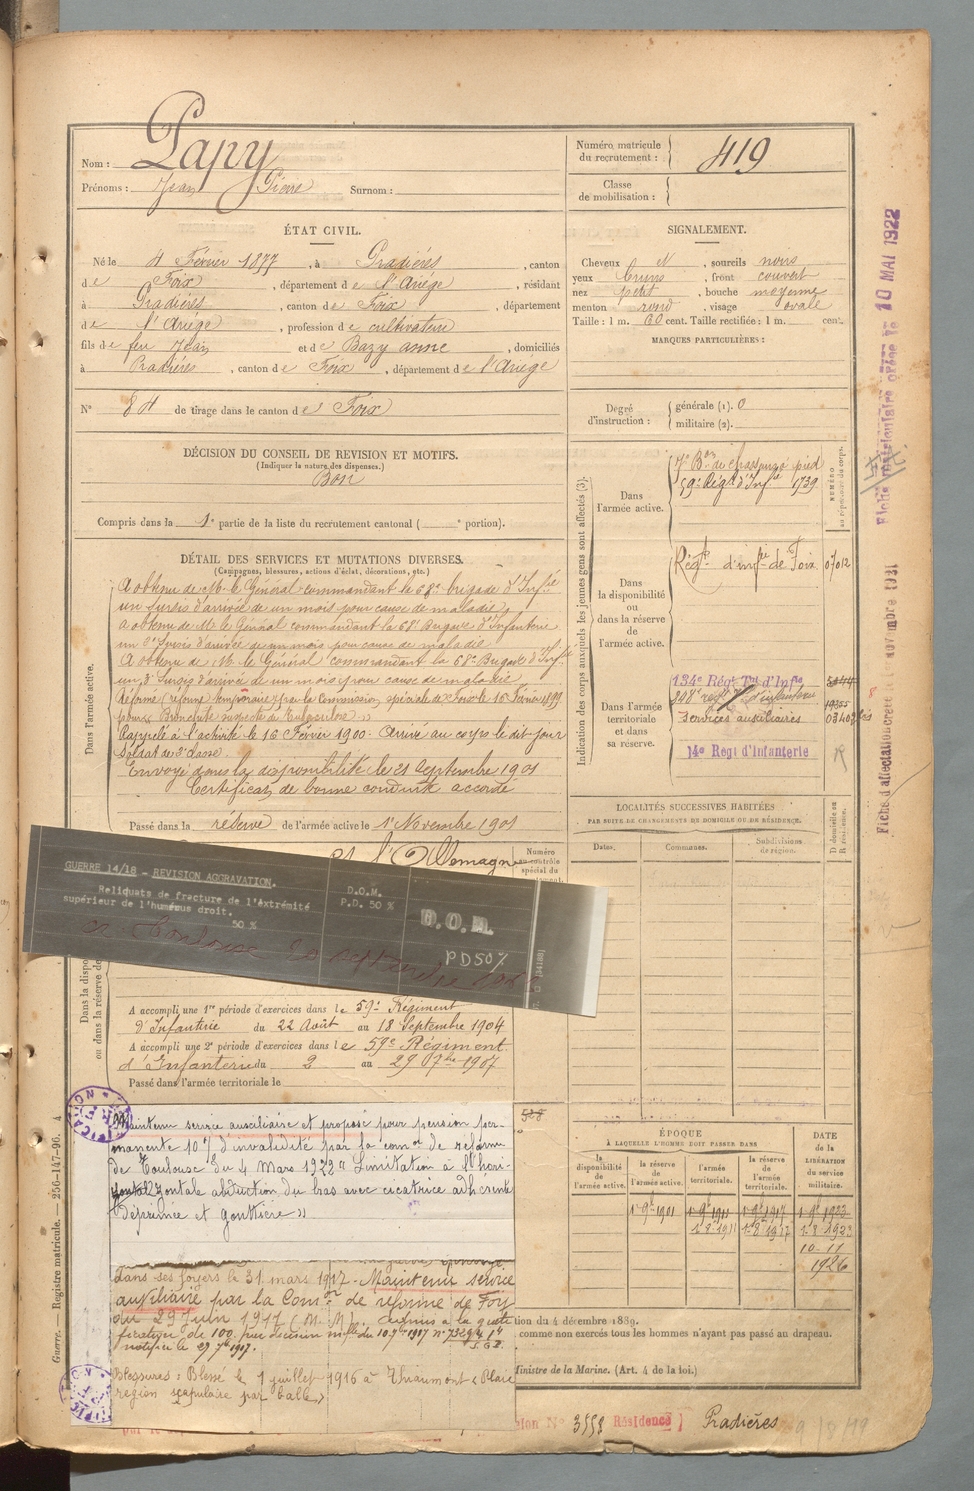 Nom : Papy
Prénoms : Jean Pierre Surnom :
Numéro matricule du recrutement : 419
Classe de mobilisation :
ÉTAT CIVIL.
Né le 4 Février 1877, à Pradières, canton
de Foix, département de l'Ariège, résidant
à Pradières, canton de Foix, département
de l'Ariège, profession de cultivateur
fils de feu Jean et de Bazy anne, domiciliés
à Pradières, canton de Foix, département de l'Ariège
N° 84 de tirage dans le canton de Foix
SIGNALEMENT.
Cheveux N, sourcils noirs
yeux bruns, front couvert
nez petit, bouche moyenne
menton rond, visage ovale
Taille : 1 m. 60 cent. Taille rectifiée : 1 m. cent.
MARQUES PARTICULIÈRES :
Degré d'instruction : générale (1). 0
militaire (2).
DÉCISION DU CONSEIL DE REVISION ET MOTIFS.
(Indiquer la nature des dispenses.)
Bon
Compris dans la 1e partie de la liste du recrutement cantonal ( e portion).
DÉTAIL DES SERVICES ET MUTATIONS DIVERSES.
(Campagnes, blessures, actions d'éclat, décorations, etc.)
Dans l'armée active.
A obtenu de M. le Général commandant la 68e brigade d'Infrie
un sursis d'arrivée de un mois pour cause de maladie
A obtenu de Mr le Général commandant la 68e Brigade d'Infanterie
un 2e sursis d'arrivée de un mois pour cause de maladie
A obtenu de M. le Général commandant la 68e Brigade d'Infie
un 3e sursis d'arrivée de un mois pour cause de maladie
Réformé (réforme temporaire) par la Commission spéciale de Foix le 16 Février 1899
pour « Bronchite suspecte de Tuberculose »
Rappelé à l'activité le 16 Février 1900. Arrivé au corps le dit jour
Soldat de 2e classe.
Envoyé dans la disponibilité le 21 Septembre 1901
Certificat de bonne conduite accordé
Passé dans la réserve de l'armée active le 1er Novembre 1901
et l'Allemagne
GUERRE 14/18 - REVISION AGGRAVATION.
Reliquats de fracture de l'extrémité
supérieur de l'humérus droit.
50 %
D.O.M.
P.D. 50 %
D.O.M.
PD 50%
A accompli une 1re période d'exercices dans le 59e Régiment
d'Infanterie du 22 Août au 18 Septembre 1904
A accompli une 2e période d'exercices dans le 59e Régiment
d'Infanterie du 2 au 29 7bre 1907
Passé dans l'armée territoriale le
Maintenu service auxiliaire et proposé pour pension per-
manente 10% d'invalidité par la comon de réforme
de Toulouse du 4 Mars 1922 « Limitation à l'hori-
zontale abduction du bras avec cicatrice adhérente
déprimée et gouttière »
dans ses foyers le 31 mars 1917. Maintenu service
auxiliaire par la Comon de réforme de Foix
du 29 Juin 1917 (M. M)
notifiée le 27 7bre 1917.
Blessures : Blessé le 1 juillet 1916 à Thiaumont « Plaie
région scapulaire par balle »
Indication des corps auxquels les jeunes gens sont affectés (3).
NUMÉRO au répertoire du corps.
Dans l'armée active.
7e Bon de chasseurs à pied
59e Régt d'Infie 1739
Dans la disponibilité ou dans la réserve de l'armée active.
Régt d'infie de Foix 07012
Dans l'armée territoriale et dans sa réserve.
134e Rég. Tal d'Infie
Services auxiliaires
14e Regt d'Infanterie
LOCALITÉS SUCCESSIVES HABITÉES
PAR SUITE DE CHANGEMENTS DE DOMICILE OU DE RÉSIDENCE.
Dates. Communes. Subdivisions de région. D domicile ou R résidence.
528
ÉPOQUE
À LAQUELLE L'HOMME DOIT PASSER DANS
la disponibilité de l'armée active. la réserve de l'armée active. l'armée territoriale. la réserve de l'armée territoriale.
DATE de la LIBÉRATION du service militaire.
1er 9bre 1901 1er 9bre 1911 1er 9bre 1917
10-11
1926
tion du 4 décembre 1889.
comme non exercés tous les hommes n'ayant pas passé au drapeau.
Ministre de la Marine. (Art. 4 de la loi.)
Résidence Pradières
Guerre. — Registre matricule. — 256-147-96.
Fiche matriculaire créée le 10 MAI 1922
Fiche d'affectation créée le novembre 1931